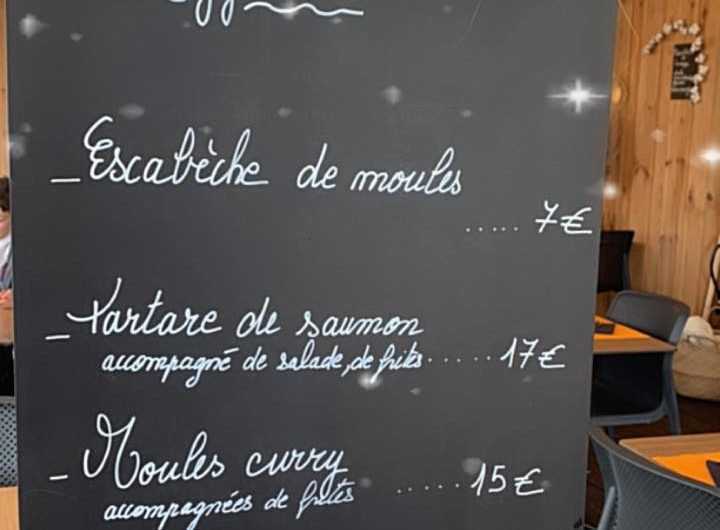 – Escabèche de moules
..... 7€
– Tartare de saumon
accompagné de salade, de frites ..... 17€
– Moules curry
accompagnées de frites ..... 15€